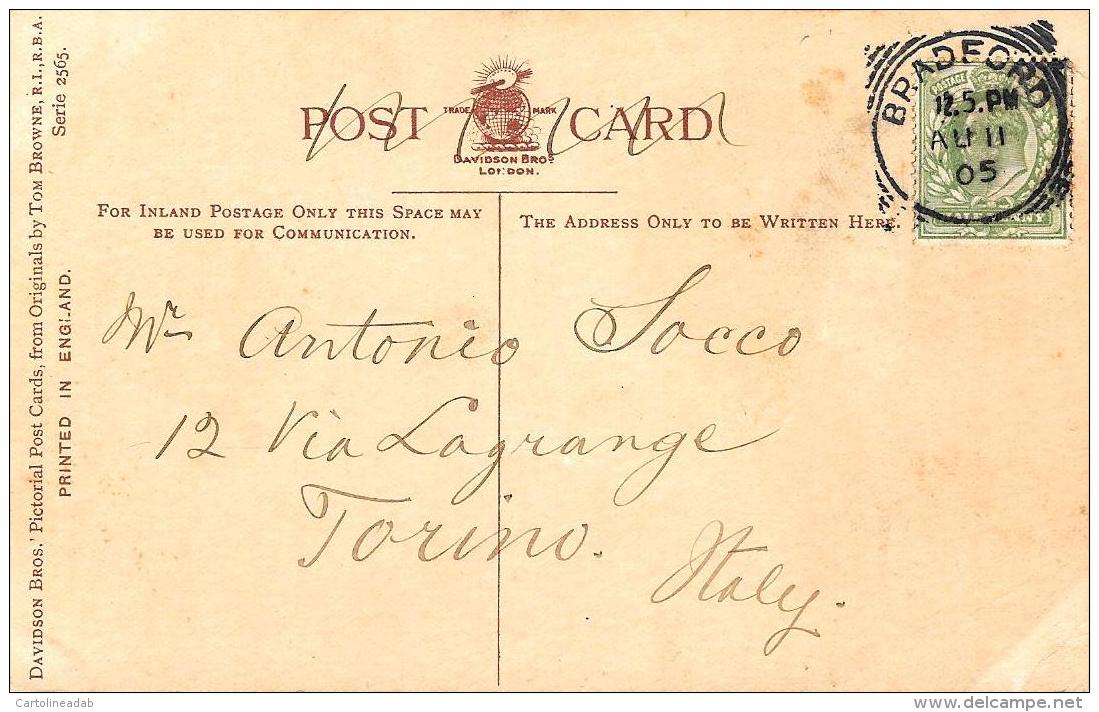 DAVIDSON BROS.' Pictorial Post Cards, from Originals by TOM BROWNE, R.I., R.B.A.
Serie 2565.
PRINTED IN ENGLAND.
POST CARD
TRADE MARK
DAVIDSON BROS.
LONDON.
FOR INLAND POSTAGE ONLY THIS SPACE MAY
BE USED FOR COMMUNICATION.
THE ADDRESS ONLY TO BE WRITTEN HERE.
BRADFORD
12.5.PM
AU 11
05
POSTAGE
Mr Antonio Socco
12 Via Lagrange
Torino.
Italy.
Cartolineadab
delcampe.net